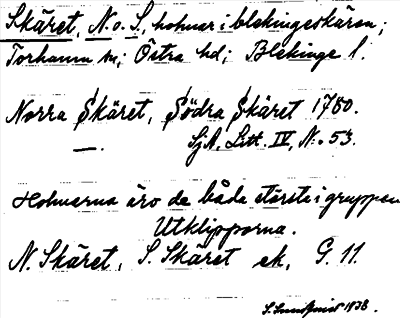 Skäret, N. o. S., holmar i blekingeskären;
Torhamn sn; Östra hd; Blekinge l.
Norra Skäret, Södra Skäret 1780.
Sj A. Litt. IV, N:o 53.
Holmarna äro de båda största i gruppen
Utklipporna.
N. Skäret, S. Skäret ek. G. 11.
1938.